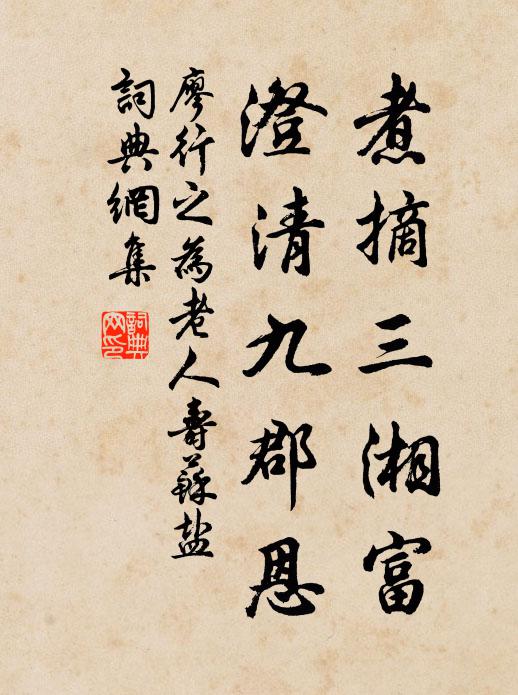 煮摘三湘富
澄清九郡恩
廖行之為老人壽蘇盐
詞典網集
詞典
网印